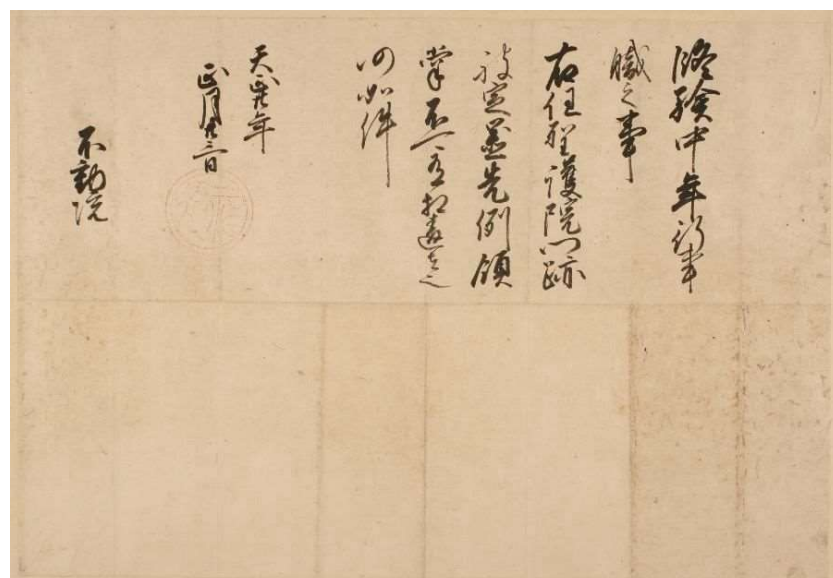 修験中年行事
職之事
右任聖護院門跡
被定置先例領
掌不可有相違者也
仍如件
天正年
正月廿三日
不動院